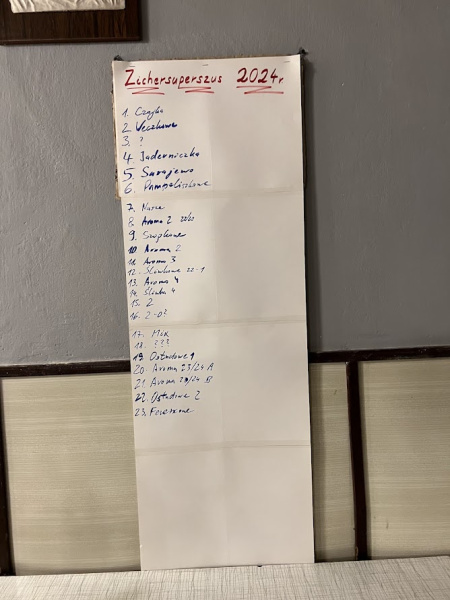 Zuchersuperszus 2024r
1. Czajka
2. Ueczkowa
3. ?
4. Jaderniczka
5. Sarajewo
6.
7. Nasza
8. Aroma 2 22/23
9.
10 Aroma 2
11. Aroma 3
12. Śliwkowa 22-1
13. Aroma 4
14. Śliwka 4
15. 2
16. 2-0?
17. Mix
18. ???
19 Ostudowe 1
20. Aroma 23/24 A
21 Aroma 23/24 B
22. Ostudowe 2
23.